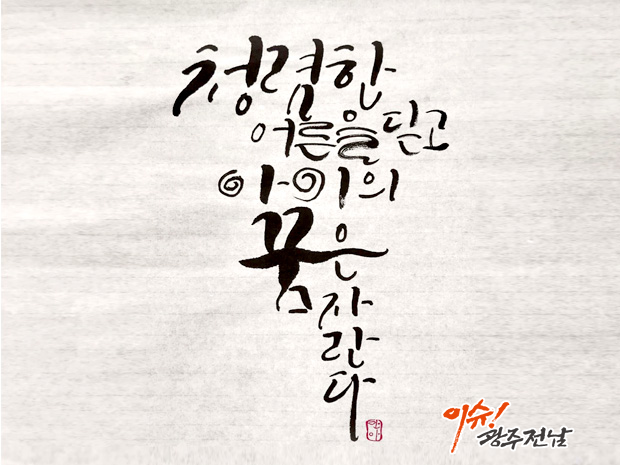 청렴한
어른을 딛고
아이의
꿈은
자
란
다
이슈!
광주전남